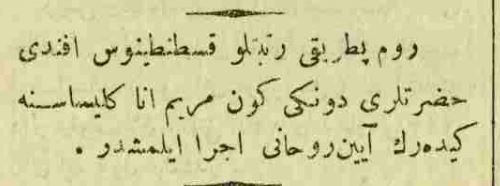 روم پطریقی رتبتلو قسطنطینوس افندی
حضرتلری دونكی كون مریم انا كلیساسنه
كیده‌رك آیین روحانی اجرا ایلمشدر .